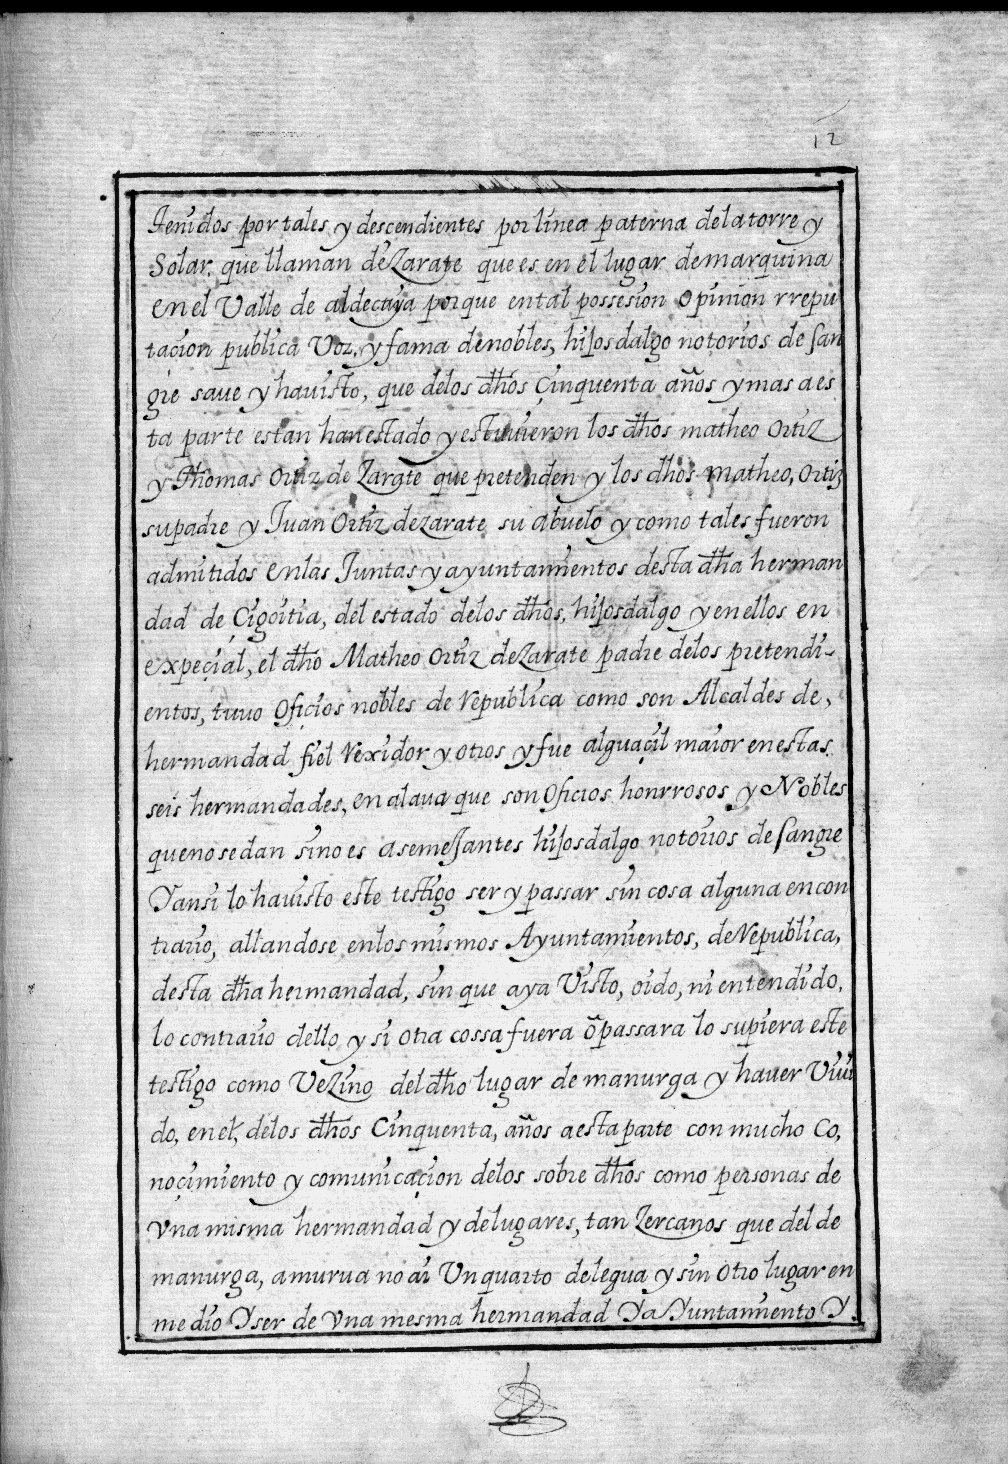 12
Tenidos por tales y descendientes por linea paterna de la torre y
Solar, que llaman de Zarate que es en el lugar de marquina
en el Valle de aldecuya porque en tal possesion opinion rrepu
taçion publica Voz, y fama de nobles, hijosdalgo notorios de san
gre saue y ha uisto, que de los dhos çinquenta años y mas a es
ta parte estan han estado y estuuieron los dhos matheo Ortiz
y Thomas Ortiz de Zarate que pretenden y los dhos matheo, Ortiz
su padre y Juan Ortiz de zarate su abuelo y como tales fueron
admitidos en las Juntas y ayuntamientos desta dha herman
dad de Çigoitia, del estado de los dhos, hijosdalgo y en ellos en
expeçial, el dho Matheo Ortiz de Zarate padre de los pretendi-
entos, tuuo Ofiçios nobles de Republica como son Alcaldes de,
hermandad fiel Rexidor y otros y fue alguaçil maior en estas
seis hermandades, en alaua que son Oficios honrrosos y Nobles
que no se dan sino es a semejantes hijosdalgo notorios de sangre
Y ansi lo ha uisto este testigo ser y passar sin cosa alguna en con
trario, allandose en los mismos Ayuntamientos, de Republica,
desta dha hermandad, sin que aya Visto, oido, ni entendido,
lo contrario dello y si otra cossa fuera õ passara lo supiera este
testigo como Vezino del dho lugar de manurga y hauer Viui
do, en el, de los dhos Cinquenta, años a esta parte con mucho Co,
noçimiento y comunicaçion de los sobre dhos como personas de
vna misma hermandad y de lugares, tan Zercanos que del de
manurga, a murua no ai Un quarto de legua y sin otro lugar en
medio Y ser de vna mesma hermandad Y a Yuntamiento Y.